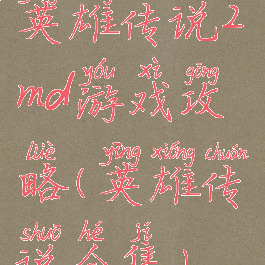 英雄传说2
yóu xì gōng
md游戏攻
lüè yīng xióng chuán
略(英雄传
shuō hé jí
说合集)